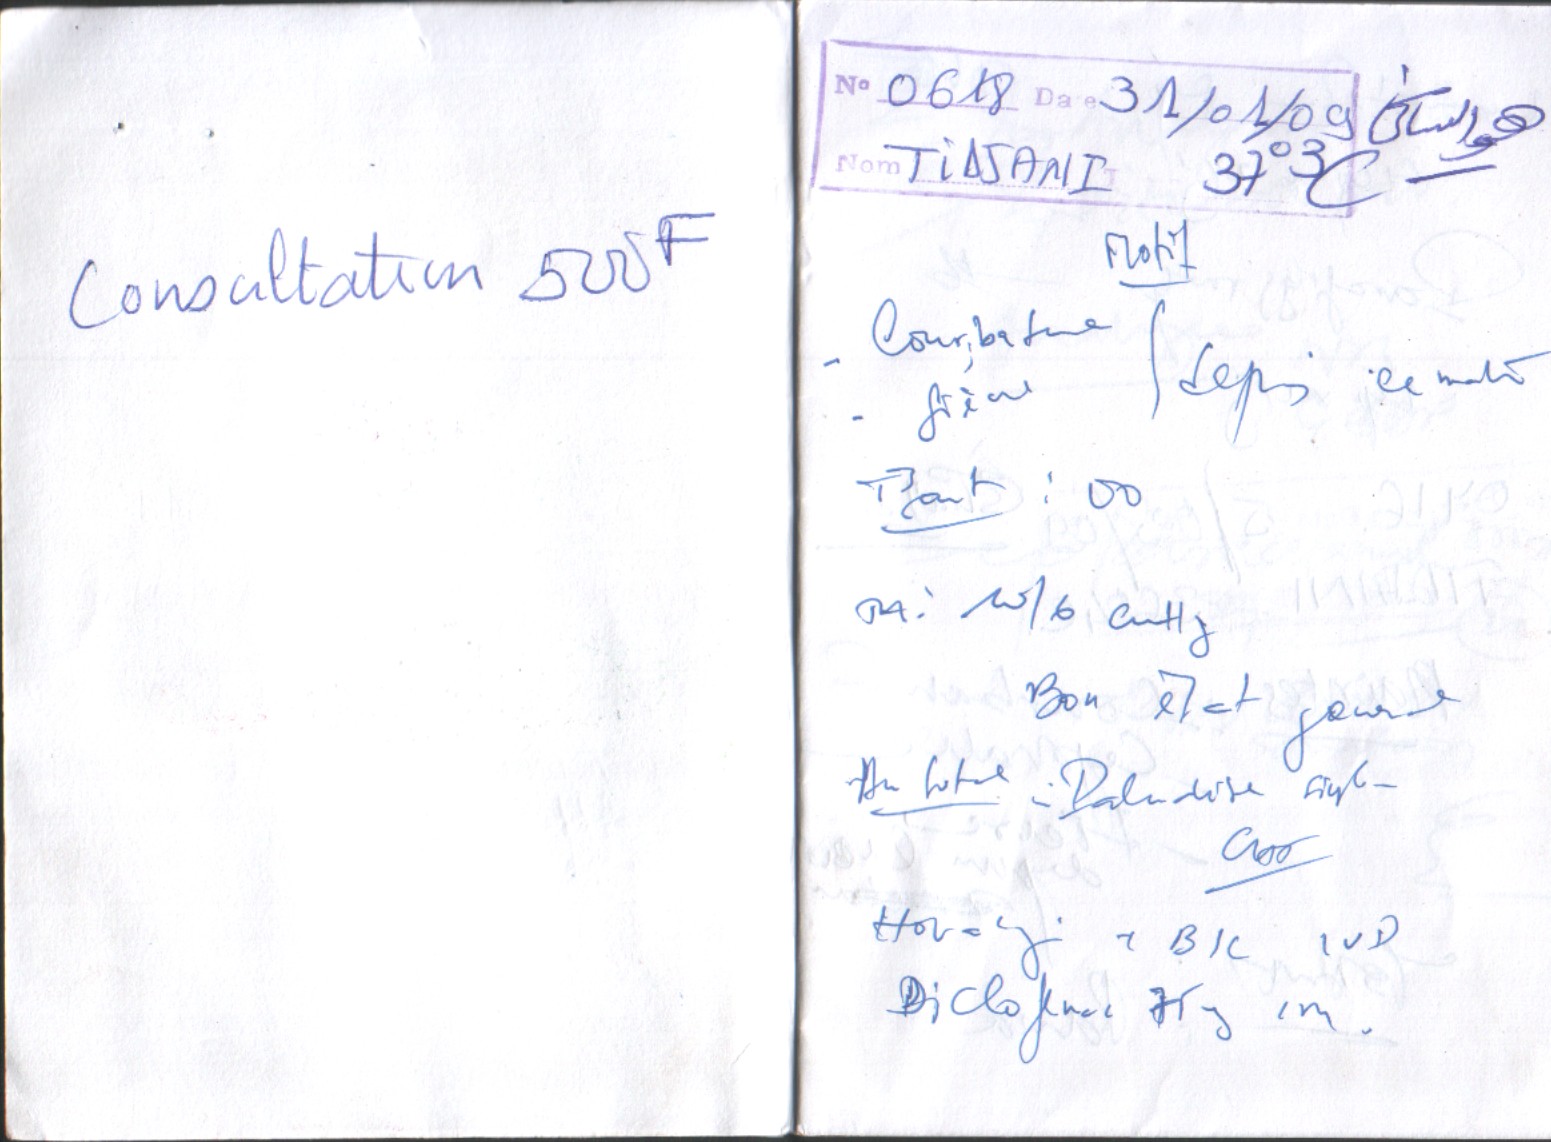 Consultation 500F
N° 0618 Date 31/01/09
Nom TiDJANI 37°3C
Motif
- Courbature
- fièvre
depuis ce matin
: 00
TA: 10/6 cmHg
Bon état général
Au total : Paludisme simple
B/C IVD
Diclofenac 75mg im.